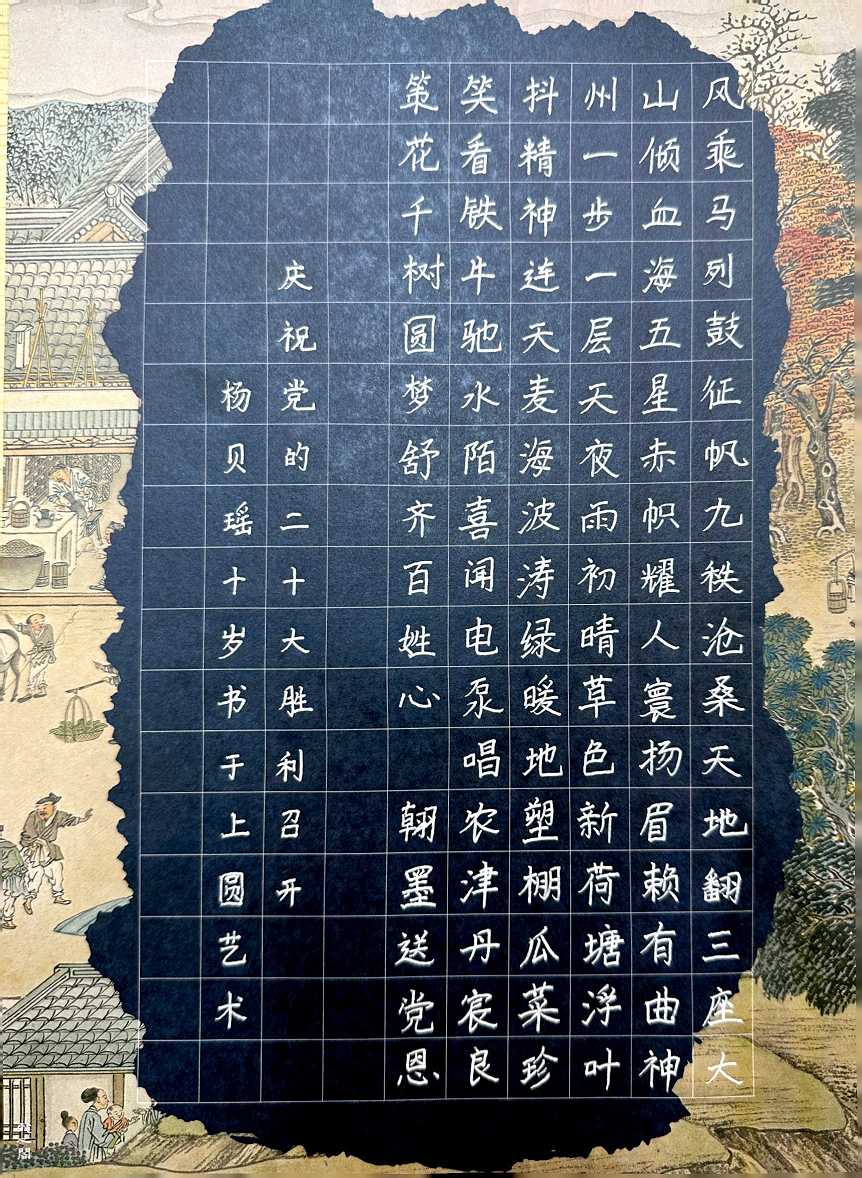 风乘马列鼓征帆九秩沧桑天地翻三座大
山倾血海五星赤帜耀人寰扬眉赖有曲神
州一步一层天夜雨初晴草色新荷塘浮叶
抖精神连天麦海波涛绿暖地塑棚瓜菜珍
笑看铁牛驰水陌喜闻电泵唱农津丹宸良
策花千树圆梦舒齐百姓心 翰墨送党恩
庆祝党的二十大胜利召开
杨贝瑶十岁书于上圆艺术